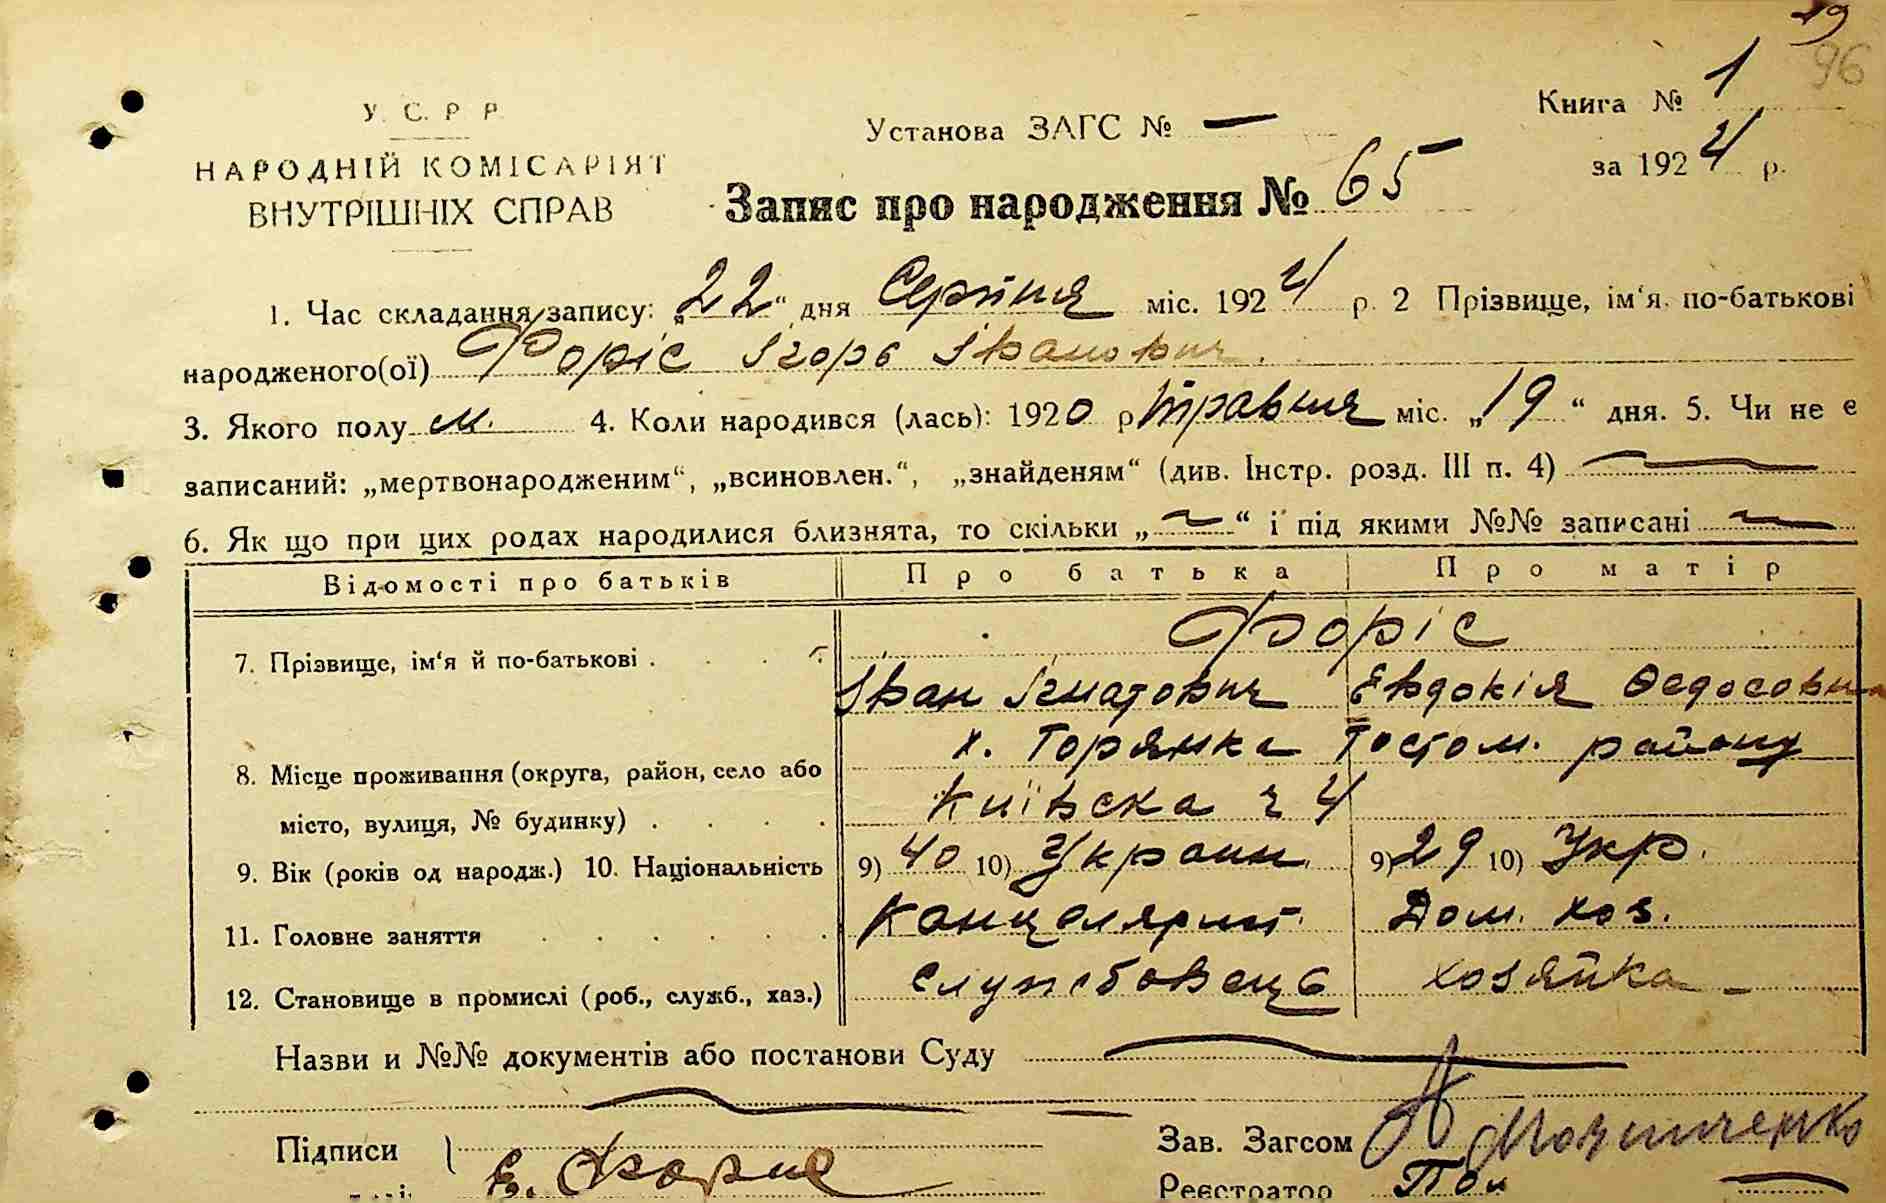 29
96
У. С. Р. Р.
Книга № 1
Установа ЗАГС № —
НАРОДНІЙ КОМІСАРІЯТ
за 1924 р.
ВНУТРІШНІХ СПРАВ
Запис про народження № 65
1. Час складання запису: „22“ дня Серпня міс. 1924 р. 2 Прізвище, ім‘я, по-батькові
народженого(ої) Форіс Ігорь Іванович.
3. Якого полу м. 4. Коли народився (лась): 1920 р Травня міс. „19“ дня. 5. Чи не є
записаний: „мертвонародженим“, „всиновлен.“, „знайденям“ (див. Інстр. розд. III п. 4) —
6. Як що при цих родах народилися близнята, то скільки „—“ і під якими №№ записані —
Відомості про батьків Про батька Про матір
Форіс
7. Прізвище, ім‘я й по-батькові . . . .
Іван Ігнатович Евдокія Федосовна
х. Горянка Гостом. району
8. Місце проживання (округа, район, село або
місто, вулиця, № будинку) . . . .
Київска ч 4
9. Вік (років од народж.) 10. Національність 9) 40 10) Украин. 9) 29 10) Укр.
11. Головне заняття . . . . . . Канцолярист. Дом. хоз.
12. Становище в промислі (роб., служб., хаз.) службовець хозяйка —
Назви и №№ документів або постанови Суду —
Підписи
Е. Форис
Зав. Загсом
Реєстратор